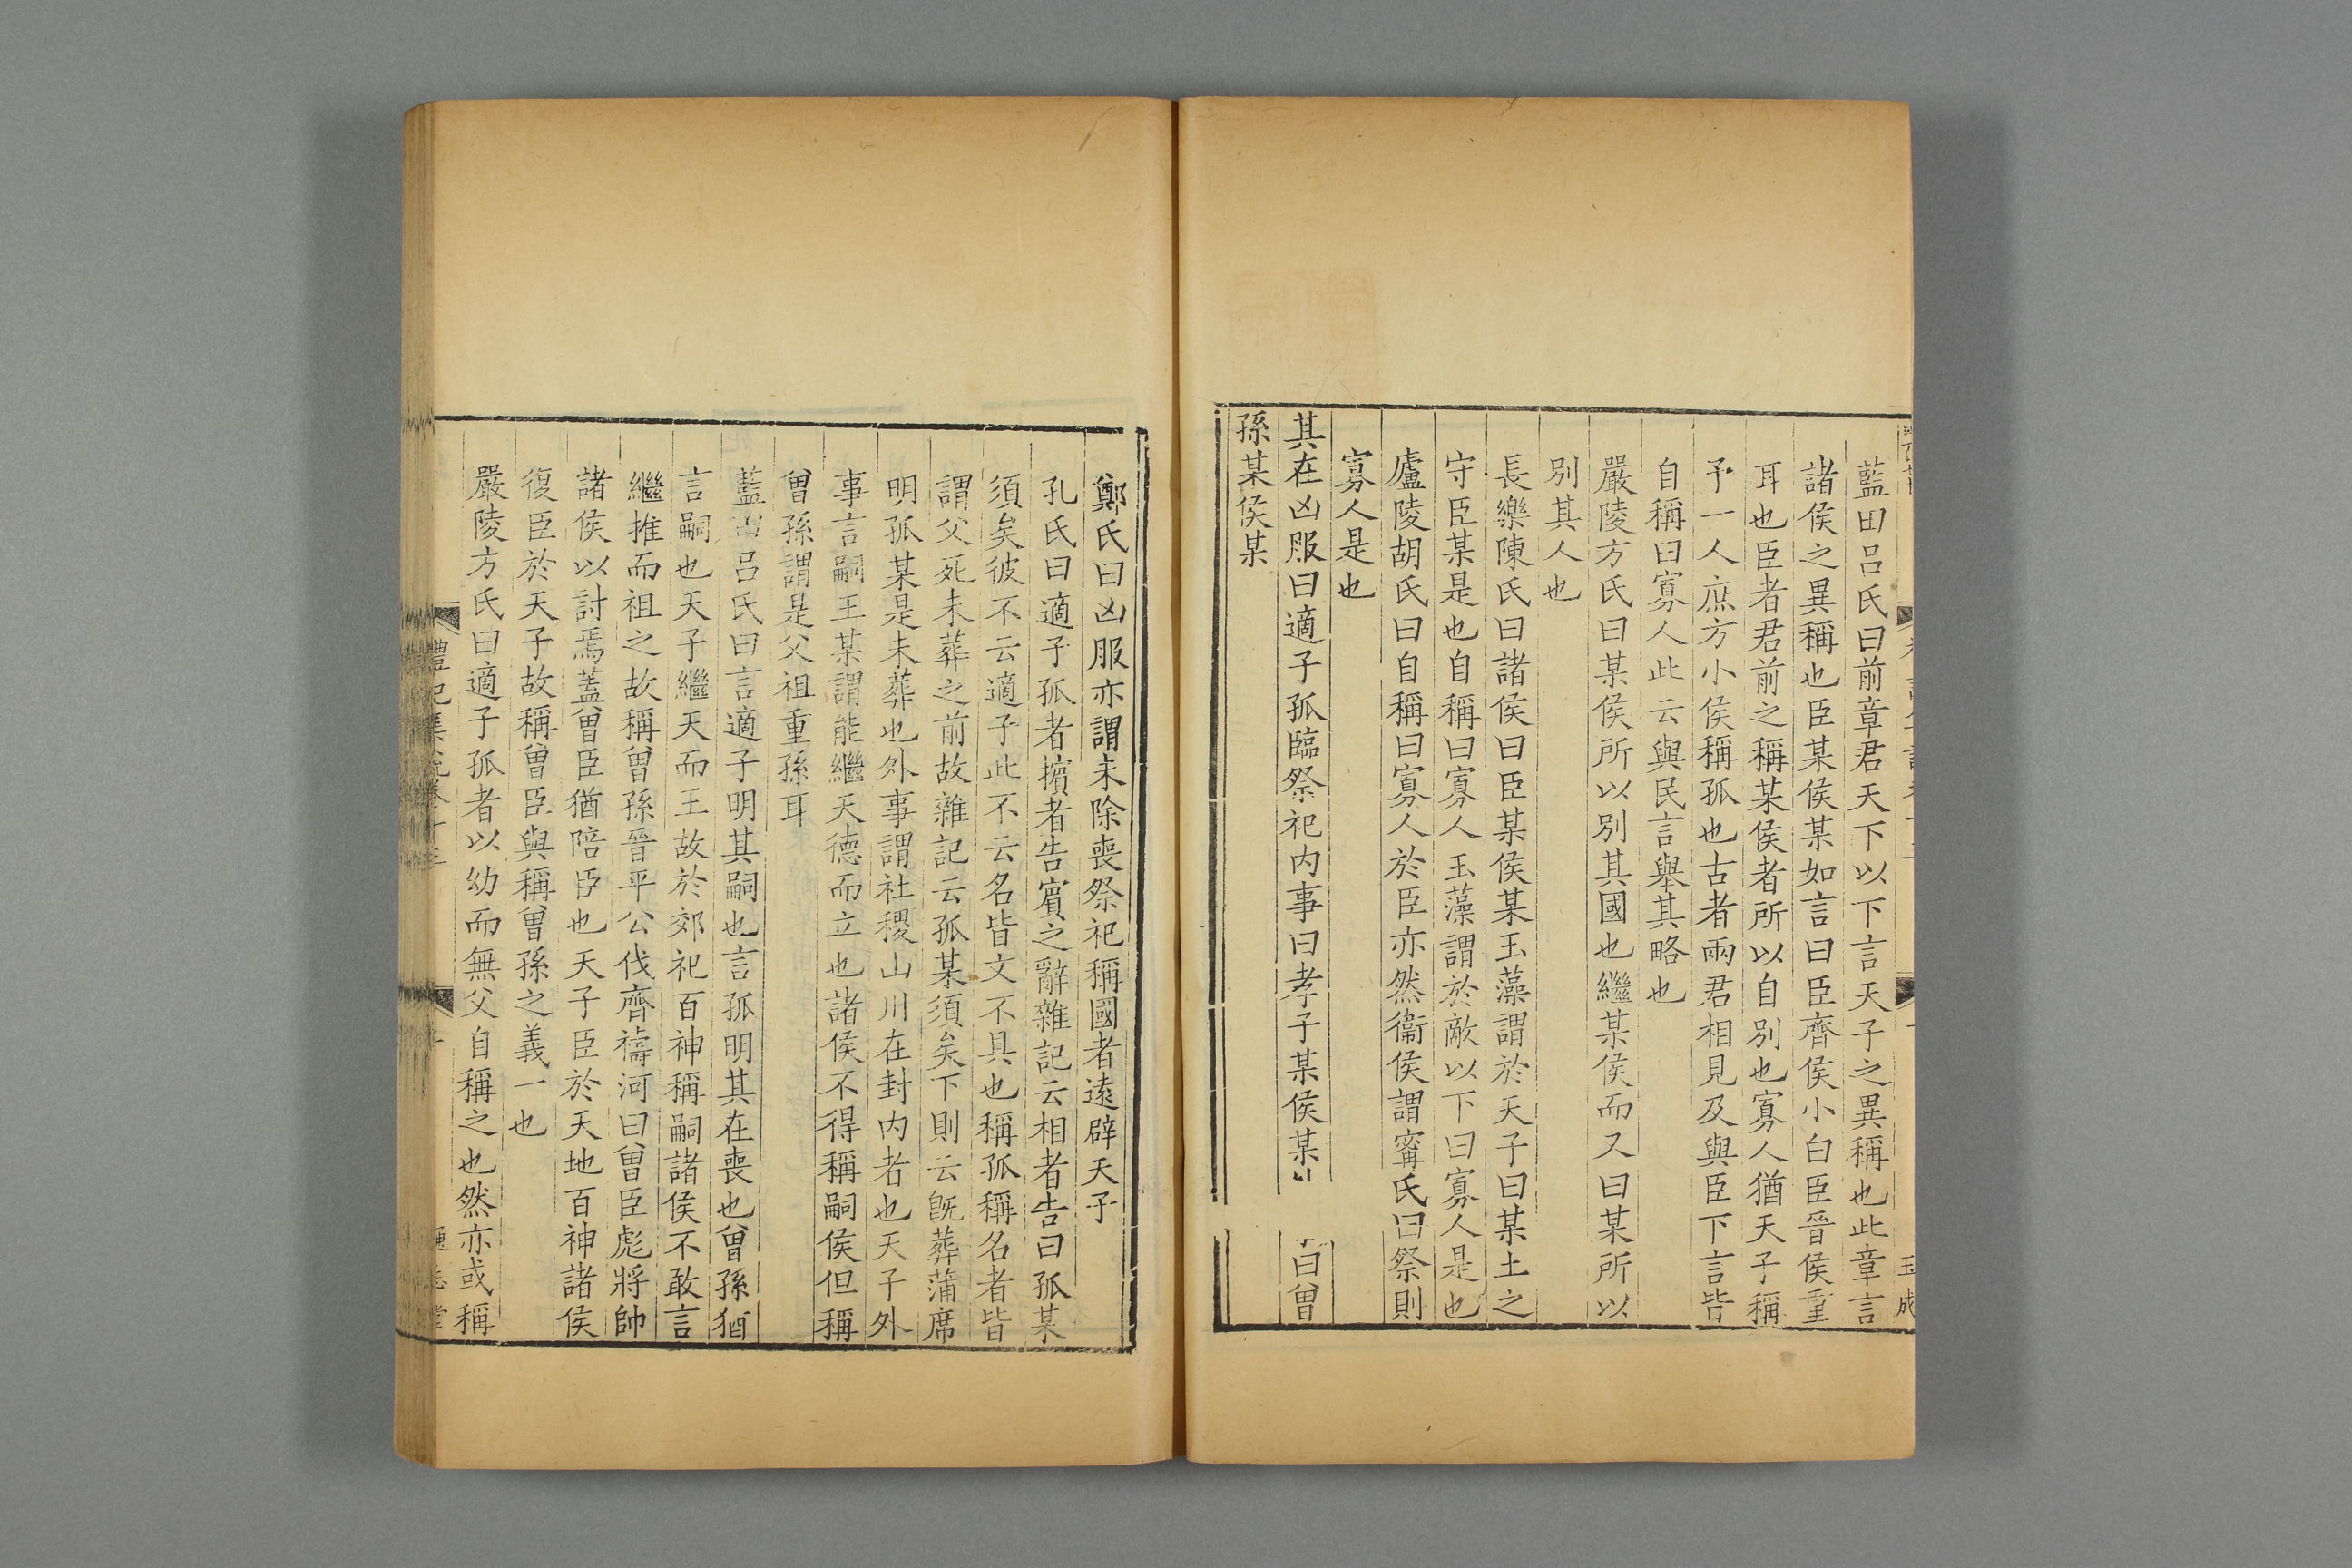 藍田呂氏曰前章君天下以下言天子之異稱也此章言
諸侯之異稱也臣某侯某如言曰臣齊侯小白臣晉侯重
耳也臣者君前之稱某侯者所以自別也寡人猶天子稱
予一人庶方小侯稱孤也古者兩君相見及與臣下言皆
自稱曰寡人此云與民言舉其略也
嚴陵方氏曰某侯所以別其國也繼某侯而又曰某所以
別其人也
長樂陳氏曰諸侯曰臣某侯某玉藻謂於天子曰某土之
守臣某是也自稱曰寡人玉藻謂於敵以下曰寡人是也
廬陵胡氏曰自稱曰寡人於臣亦然衞侯謂甯氏曰祭則
寡人是也
其在凶服曰適子孤臨祭祀内事曰孝子某侯某 曰曾
孫某侯某
鄭氏曰凶服亦謂未除喪祭祀稱國者遠辟天子
孔氏曰適子孤者擯者告賓之辭雜記云相者告曰孤某
須矣彼不云適子此不云名皆文不具也稱孤稱名者皆
謂父死未葬之前故雜記云孤某須矣下則云旣葬蒲席
明孤某是未葬也外事謂社稷山川在封内者也天子外
事言嗣王某謂能繼天德而立也諸侯不得稱嗣侯但稱
曾孫謂是父祖重孫耳
藍田呂氏曰言適子明其嗣也言孤明其在喪也曾孫猶
言嗣也天子繼天而王故於郊祀百神稱嗣諸侯不敢言
繼推而祖之故稱曾孫晉平公伐齊禱河曰曾臣彪將帥
諸侯以討焉蓋曾臣猶陪臣也天子臣於天地百神諸侯
復臣於天子故稱曾臣與稱曾孫之義一也
嚴陵方氏曰適子孤者以幼而無父自稱之也然亦或稱
禮記集說卷十三
通志堂